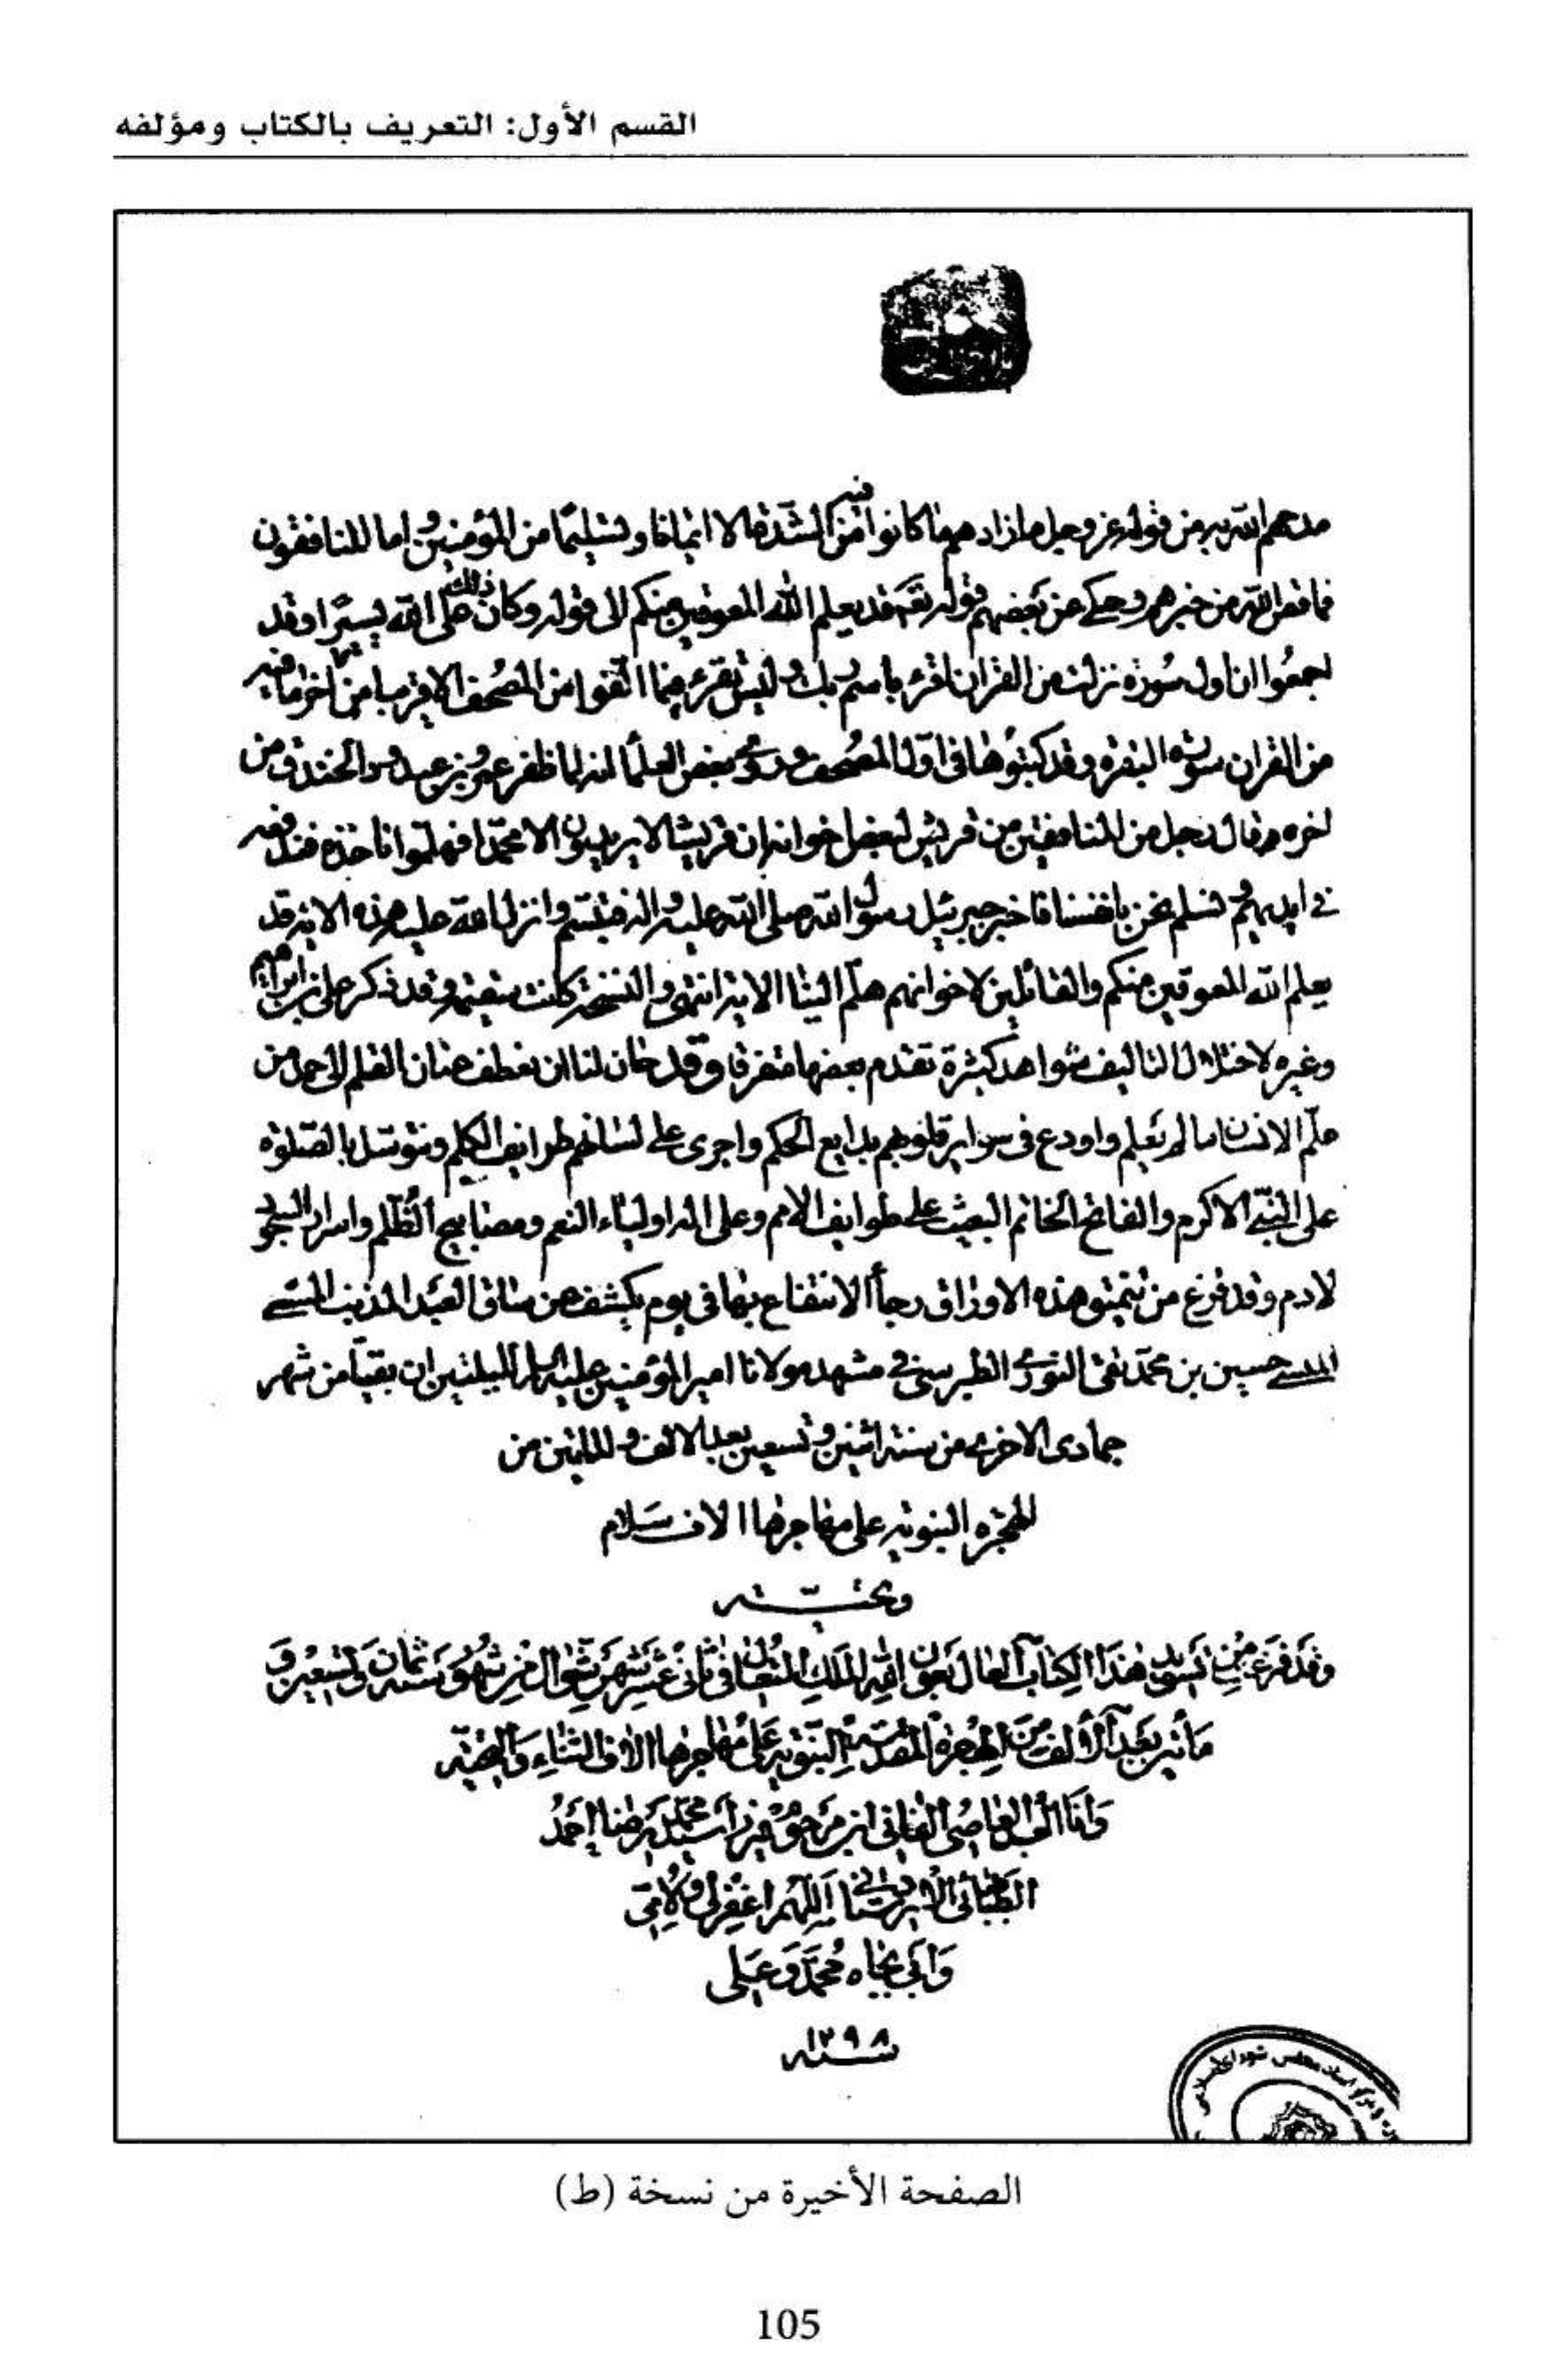 القسم الأول: التعريف بالكتاب ومؤلفه
من قوله عز وجل ما زادهم ما كانوا فيه من الشدة الا ايمانا وتسليما من المؤمنين واما المنافقون
من خبرهم وحكى عن بعضهم قوله تعه قد يعلم الله المعوقين منكم الى قوله وكان ذلك على الله يسيرا وقد
اجمعوا ان اول سورة نزلت من القران اقرء باسم ربك وليس تقرء فيما الفوا من المصحف الا قريبا من اخره
من القران سورة البقرة وقد كتبوها في اول المصحف وروى بعض العلماء انه لما ظفر عمرو بن عبد ود الخندق من
اخره وقال رجل من المنافقين من قريش لبعض اخوانه ان قريشا لا يريدون الا محمدا فهلموا ناخذه فندفعه
في ايديهم ونسلم نحن بانفسنا فاخبر جبرئيل رسول الله صلى الله عليه واله فتبسم وانزل الله عليه هذه الاية قد
يعلم الله المعوقين منكم والقائلين لاخوانهم هلم الينا الاية انتهى والنسخة كانت سقيمة وقد ذكر علي بن ابراهيم
وغيره لاختلال التاليف شواهد كثيرة تقدم بعضها متفرقا وقد حان لنا ان نعطف عنان القلم الى حمد من
علم الانسان ما لم يعلم واودع في سراير قلوبهم بدايع الحكم واجرى على لسانهم طرايف الكلم ونتوسل بالصلوة
على النبي الاكرم والفاتح الخاتم البعيث على طوايف الامم وعلى اله اولياء النعم ومصابيح الظلم واسرار السجود
لادم وقد فرغ من تنميق هذه الاوراق رجاء الانتفاع بها في يوم يكشف عن ساق العبد المذنب المسيء
حسين بن محمد تقي النوري الطبرسي في مشهد مولانا امير المؤمنين عليه السلام لليلتين ان بقيتا من شهر
جمادى الاخرى من سنة اثنين وتسعين بعد الالف والمايتين من
الهجرة النبوية على مهاجرها الاف سلام
وتحية
وقد فرغ من تسويد هذا الكتاب بعون الله الملك المتعال في ثاني عشر شهر شوال من شهور سنة ثمان وتسعين و
مأتين بعد الألف من الهجرة المقدسة النبوية على مهاجرها الاف الثناء والتحية
وانا العاصي الفاني ابن مرحوم ميرزا سيد محمد رضا احمد
الطباطبائي الاردستاني اللهم اغفر لي ولامي
وابي بجاه محمد وعلي
سنة ١٢٩٨
الصفحة الأخيرة من نسخة (ط)
105